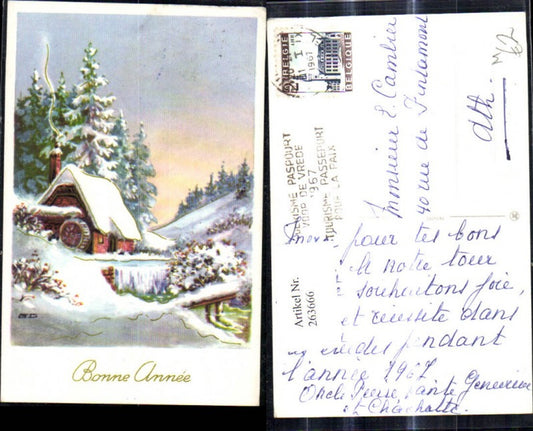 Bonne Année
BELGIE BELGIQUE
1967
TOERISME PASPOORT
VOOR DE VREDE
1967
TOURISME PASSEPORT
POUR LA PAIX
Monsieur E. Cambier
40 rue de
Ath.
Artikel Nr.
263666
pour tes bons
à notre tour
souhaitons joie,
et réussite dans
études pendant
l'année 1967
Oncle Pierre, tante Geneviève
et Charlotte.